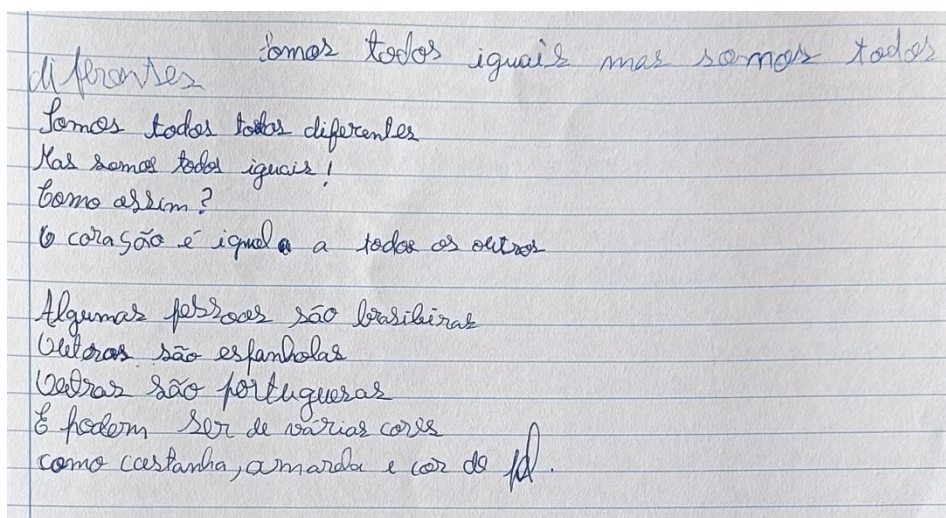 Somos todos iguais mas somos todos
diferentes
Somos todos todos diferentes
Mas somos todos iguais!
Como assim?
O coração é igual a a todos os outros
Algumas pessoas são brasileiras
Outras são espanholas
Outras são portuguesas
E podem ser de várias cores
como castanha, amarela e cor de